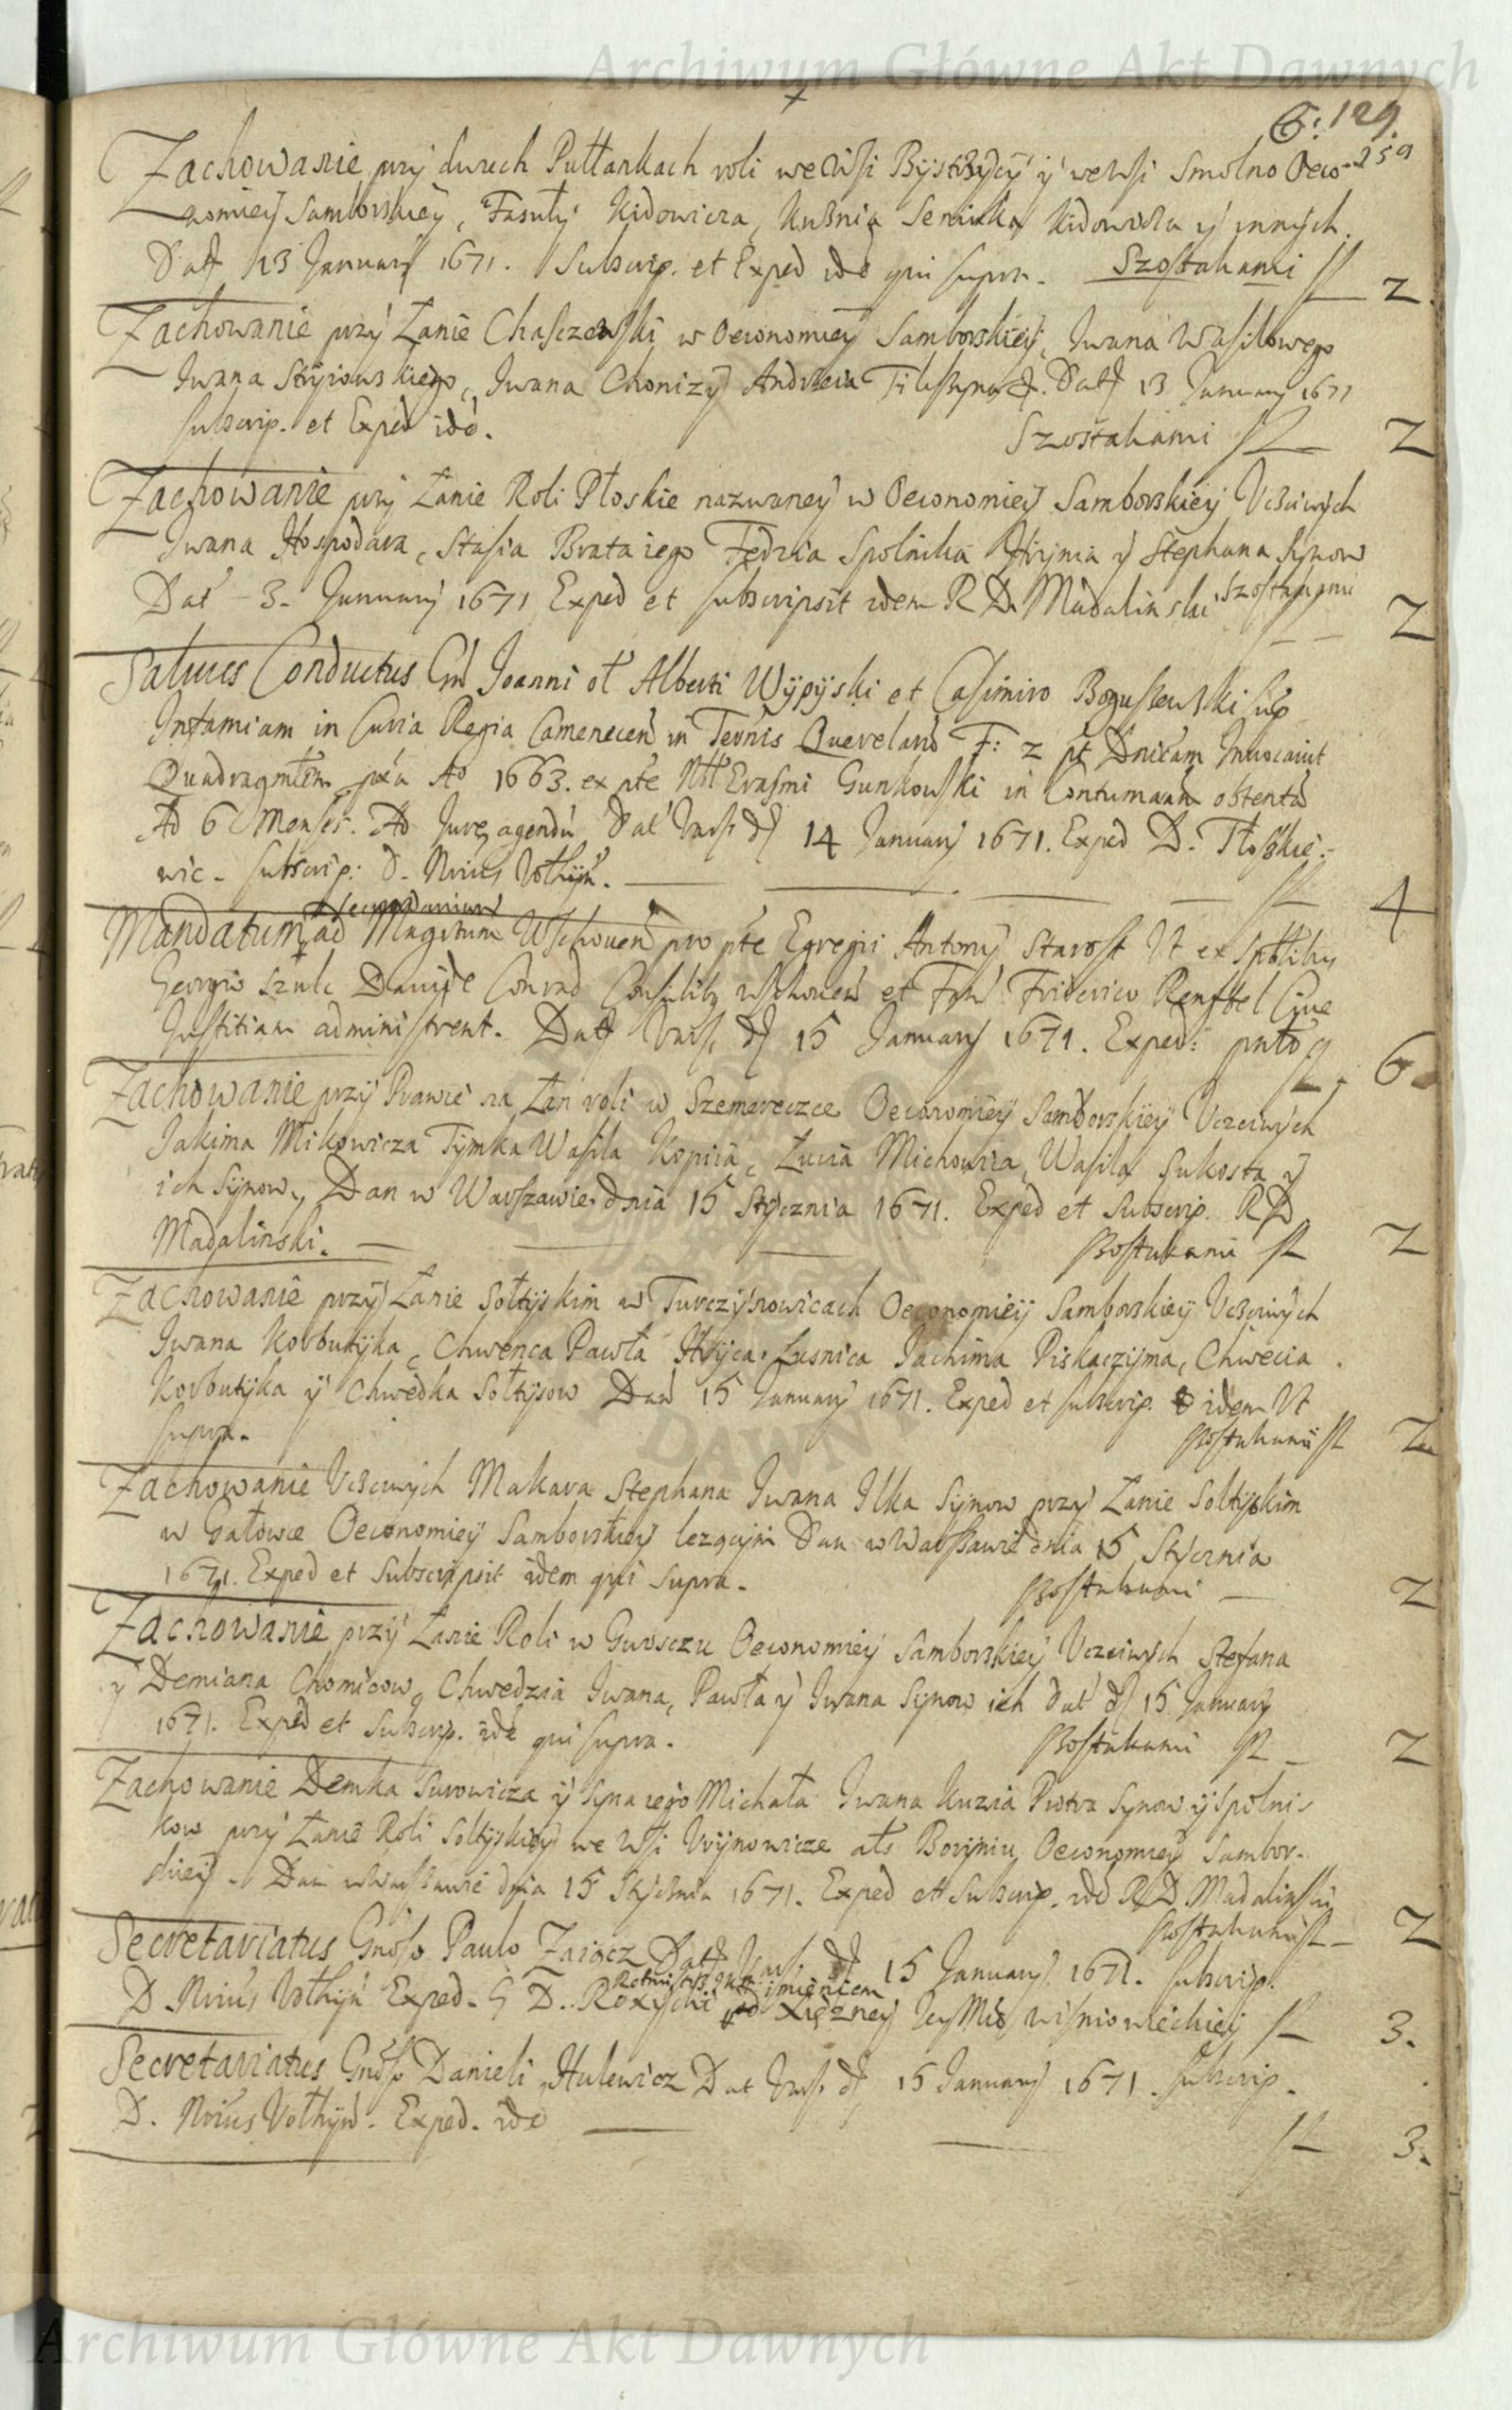 Archiwum Główne Akt Dawnych
6: 129.
259
Zachowanie przy dwuch Pułłankach roli we Wsi Bystrzycy y we Wsi Smolno Oeco-
nomiey Samborskiey, Fasuły Kidowicza, Kuźnia Seniuka Kidowicza y innych.
Datt 13 January 1671. Subscrip. et Exped idē qui supra. Szostakami fl 2.
Zachowanie przy Łanie Chaszczewski w Oeconomiey Samborskiey, Iwana Wasilowego
Iwana Stryiowskiego, Iwana Chonizy Andrzeia &. Datt 13 January 1671
subscrip. et Exped idē. Szostakami fl 2
Zachowanie przy Łanie Roli Płoskie nazwaney w Oeconomiey Samborskiey Uczciwych
Iwana Hospodara, Stasia Brata iego Fedzia Spolnika Hrynia y Stephana Synow
Dat 3. January 1671 Exped et subscripsit idem R D. Madalinski Szostakami
2
Salvus Conductus Gnd Joanni ol Alberti Wypyski et Casimiro Boguszewski sup
Infamiam in Curia Regia Camenecen in Termis Querelarū F: 2 pt Dnicam Invocavit
Quadragmlem pxa Ao 1663. ex pte Nll Erasmi Gunkowski in Contumaam obtenta
Ad 6 Menses. Ad Jure agendū Dat Vars. d 14 January 1671. Exped D. Tłoszkie-
wic. subscrip: D. Nrius Vołhyn. fl 4
Secundarium
Mandatum ad Magrtum Wschoven pro pte Egregii Antony Starost Ut ex Spblibs
Georgio Szulc Davide Conrad Consulib wschoven et Fam Friderico Renftel Cive
Justitiam administrent. Datt Vars. d 15 January 1671. Exped: fl 6
Zachowanie przy Prawie na Łan roli w Szemereczce Oeconomiey Samborskiey Uczciwych
Jakima Mikowicza Tymka Wasila Kopiia, Łucia Michowica, Wasila Sukosta y
ich Synow, Dan w Warszawie dnia 15 Stycznia 1671. Exped et Subscrip. R D
Madalinski. Szostakami fl 2
Zachowanie przy Łanie Sołtyskim w Turczynowicach Oeconomiey Samborskiey Uczciwych
Iwana Korbutyka, Chwenca Pawła Hryca Łesnica Jachima Piskaczyma, Chwecia
Korbutyka y Chwedka Sołtysow Dan 15 January 1671. Exped et subscrip. idem Ut
supra. Szostakami fl 2
Zachowanie Uczciwych Makara Stephana Iwana Ilka Synow przy Łanie Sołtyskim
w Gałowce Oeconomiey Samborskiey lezącym Dan w Warszawie dnia 15 Stycznia
1671. Exped et Subscripsit idem qui supra. Szostakami 2
Zachowanie przy Łanie Roli w Gwosczu Oeconomiey Samborskiey Uczciwych Stefana
y Demiana Chomicow, Chwedzia Iwana, Pawła y Iwana Synow ich Dat d 15 January
1671. Exped et Subscrip. idē qui supra. Szostakami fl 2
Zachowanie Demka Surowicza y Syna iego Michała Iwana Kuzia Piotra Synow y Spolni-
kow przy Łanie Roli Sołtyskiey we Wsi Urynowicze als Boryniu, Oeconomiey Sambor-
skiey. Dan w Warszawie dnia 15 Stycznia 1671. Exped et Subscrip. idē R D Madalinski
Szostakami fl 2
Secretariatus Gnoso Paulo Zaiącz Datt Vars. d 15 January 1671. subscrip.
imieniem
D. Nrius Vołhyn Exped. G D. Roxycki od Xiężney Jey Mci Wisniowieckiey fl 3.
Secretariatus Gnoso Danieli Hulewicz Dat Vars. d 15 January 1671. subscrip.
D. Nrius Vołhyn. Exped. idē fl 3.
Archiwum Główne Akt Dawnych